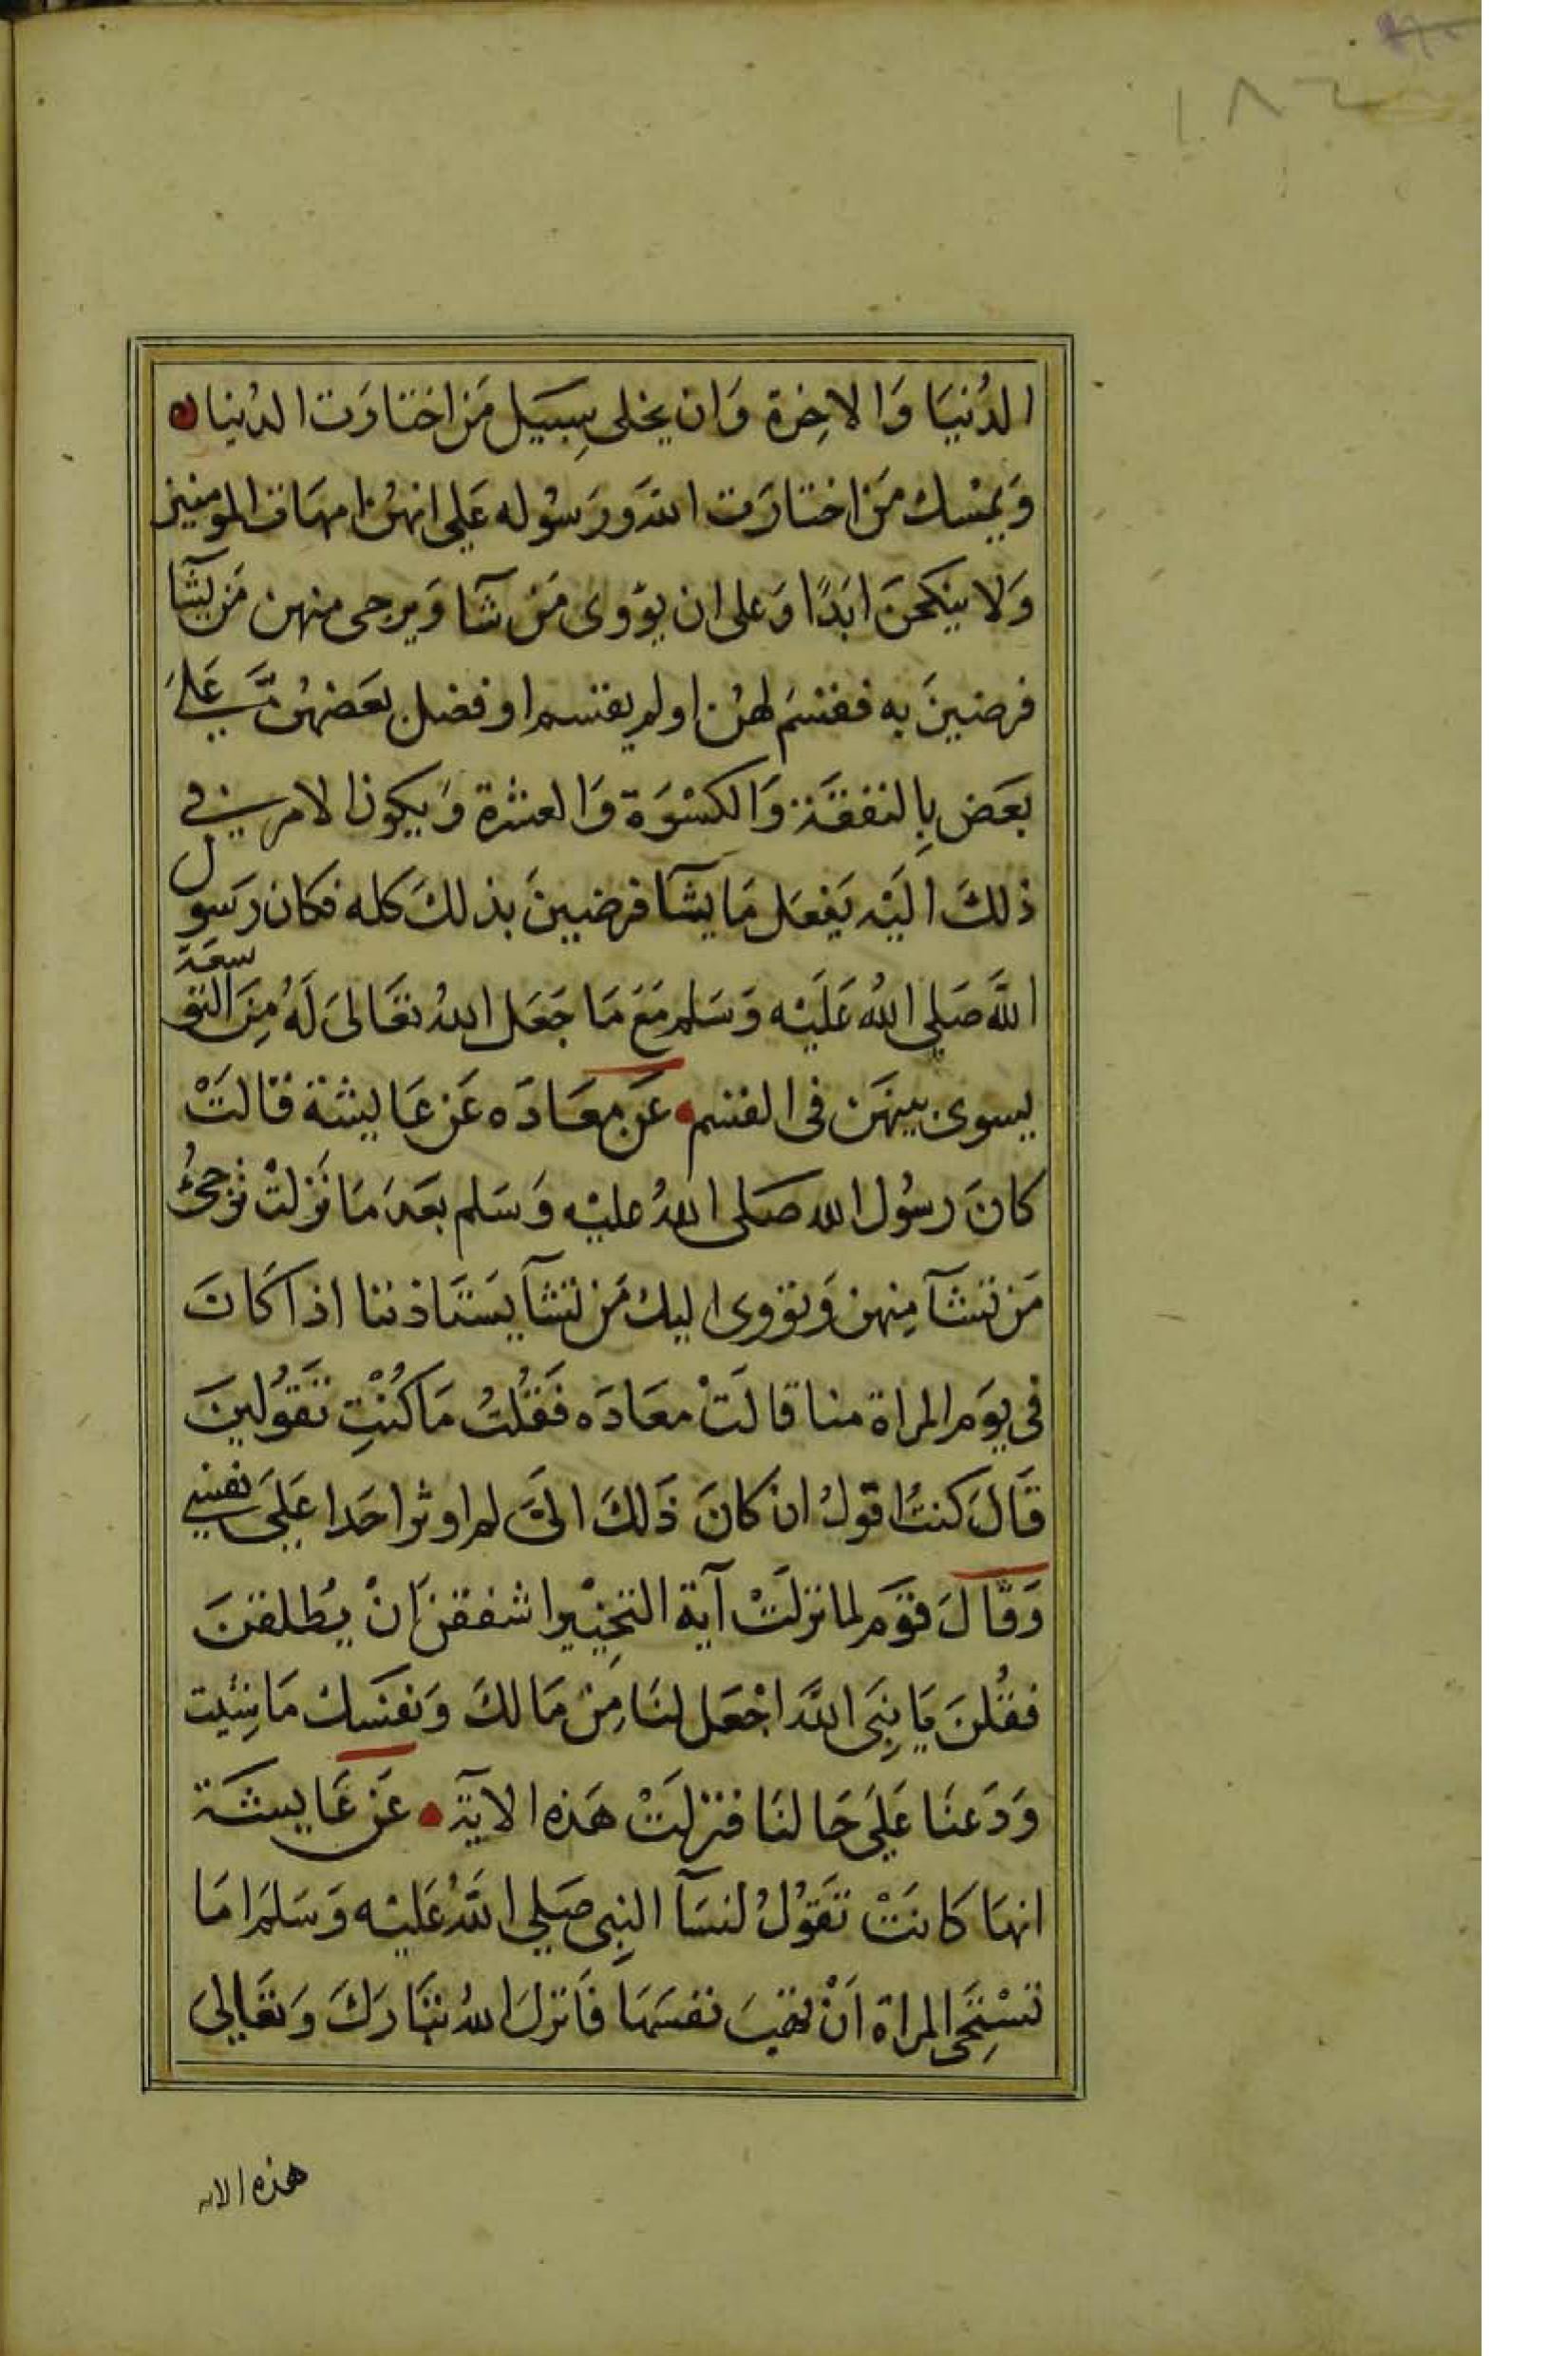 ١٨٦
الدُنيَا وَالاخِرة وَان يخلى سِبيَل مَن اختاوَت الدُنيا
وَيمسْك مَن اختارَت اللهَ وَرَسُوله عَلى انهن امهَات المومنين
وَلا ينكحنَ ابَدًا وَعلى ان يؤوى مَنْ شآ وَيرجى منهن مَن يشآ
فرضينَ به فقسَم لهن او لم يقسم او فضل بَعَضهُن عَلى
بعَض بِالنفقَة وَالكسْوَة وَالعشرة وَيكون الامر في
ذلكَ اليَه يَفعَل مَا يشآ فرضيينَ بذلكَ كله فكان رَسول
اللَّه صَلى اللهُ عَلَيْه وَسَلم مَعَ مَا جَعَل اللهُ تعَالىَ لَهُ مِنَ التوسعَة
يسوى بينهَن فى القسم عَن معَادَه عَن عَايشة قالَتْ
كانَ رسُول الله صَلى اللهُ عليْه وَسَلم بعَدَ مَا نَزلتْ تُرجئُ
مَن تشَآ مِنهن وَتؤوى اليك مَن تشآ يسَتَاذننا اذا كَانَ
فى يوَم المراة منا قالَتْ معَادَه فَقُلْتُ مَا كُنْتِ تَقوُلينَ
قَالَ كنتُ اقولُ ان كانَ ذَلكَ الىَّ لم اوثر احَدا عَلىَ نفسي
وَقَالَ قوَم لما نزلَتْ آية التخِيْير اشفقن َانْ يُطلقنَ
فقُلنَ يَا نبىَ اللهَ اجْعَل لنَا مِنْ مَالكَ وَنفسَك مَا شِئيت
وَدَعنَا عَلىَ حَالنَا فنزلَتْ هَذه الايَة عَن عَايشَة
انهَا كَانَتْ تقَوُلُ لنسَآ النبِى صَلى اللهُ عَليْه وَسَلم امَا
تسْتِحَى المراة اَنْ تهَبَ نفسَهَا فَانزلَ اللهُ تبَارَكَ وَتعَالىَ
هذه الايه